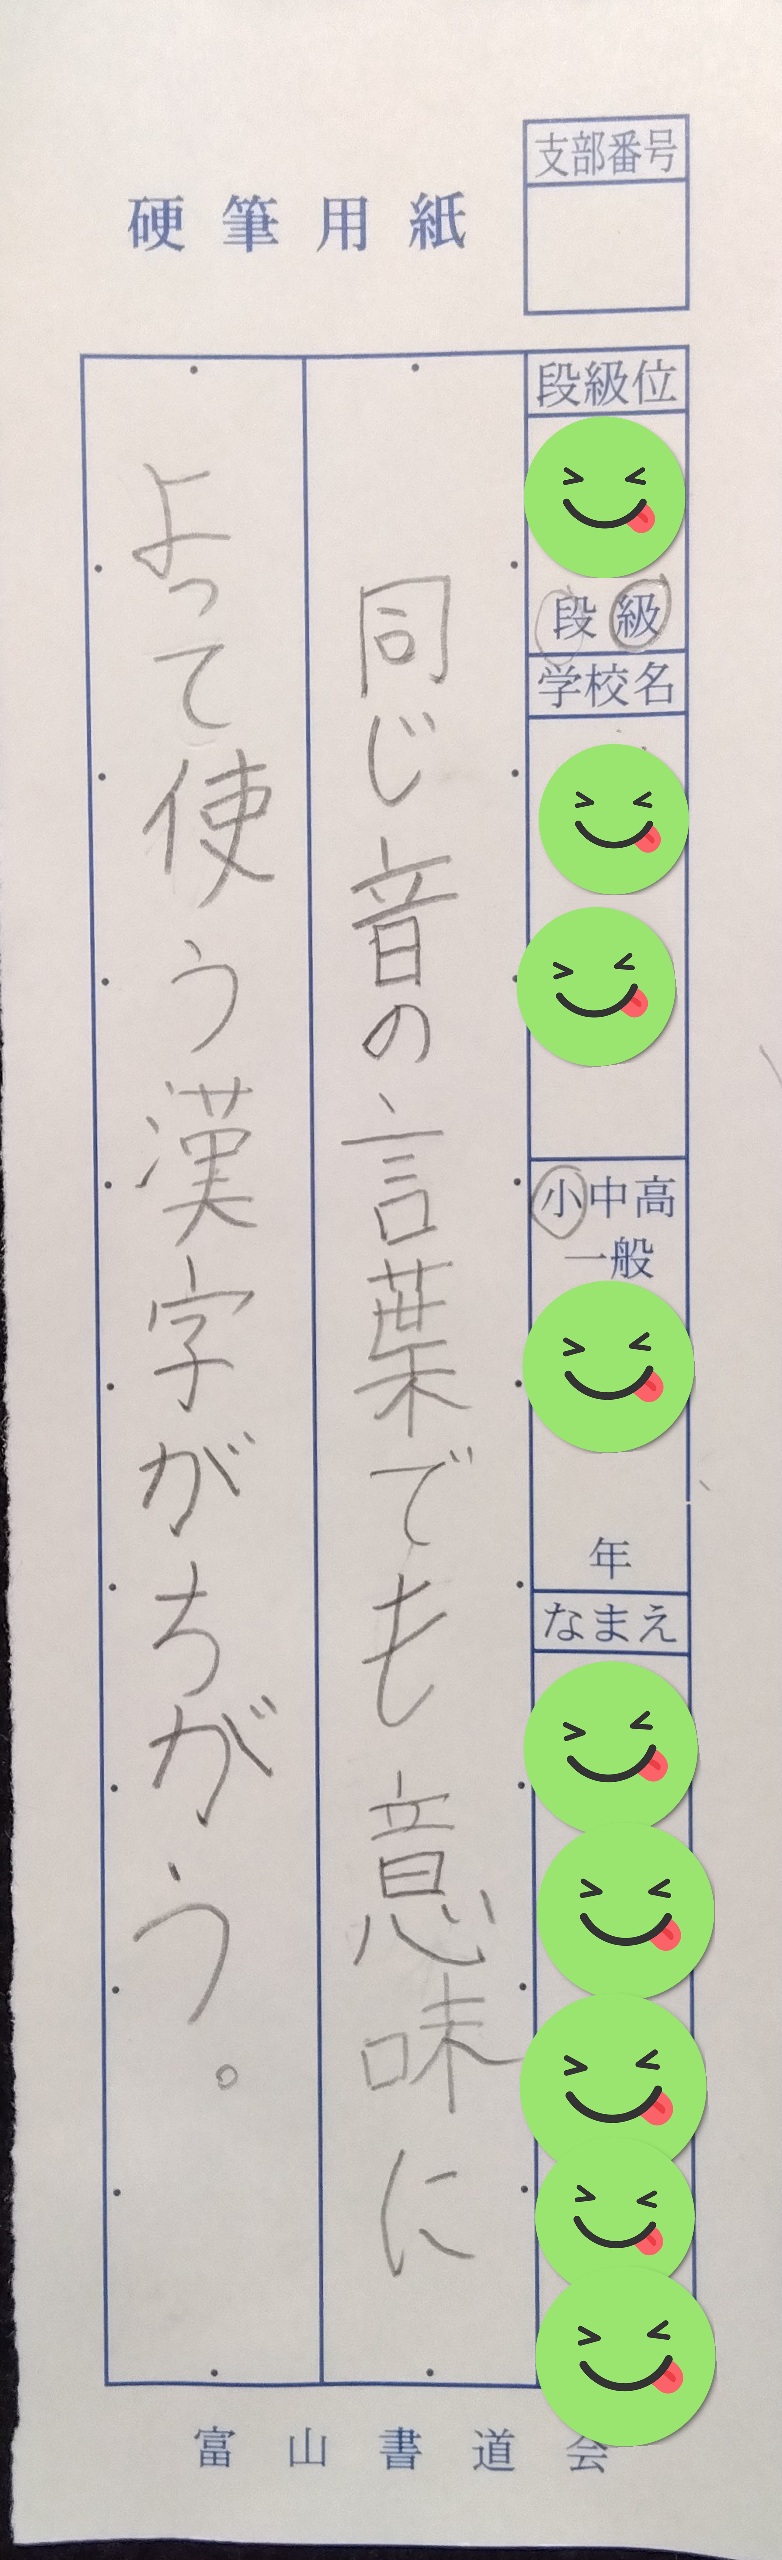 硬筆用紙
支部番号
段級位
段 級
学校名
小中高
一般
年
なまえ
同じ音の言葉でも意味に
よって使う漢字がちがう。
富山書道会